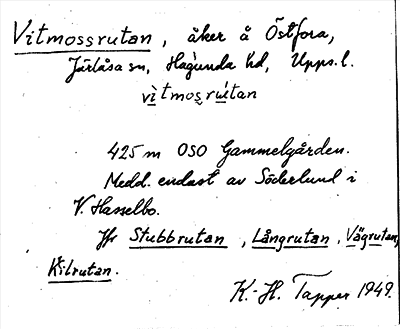 Vitmossrutan, åker å Östfora,
Järlåsa sn, Hagunda hd, Upps. l.
vìtmosrú̀tan
425 m OSO Gammelgården.
Medd. endast av Söderlund i
V. Hasselbo.
Jfr Stubbrutan, Långrutan, Vägrutan,
Kilrutan.
K.-H. Tapper 1949.